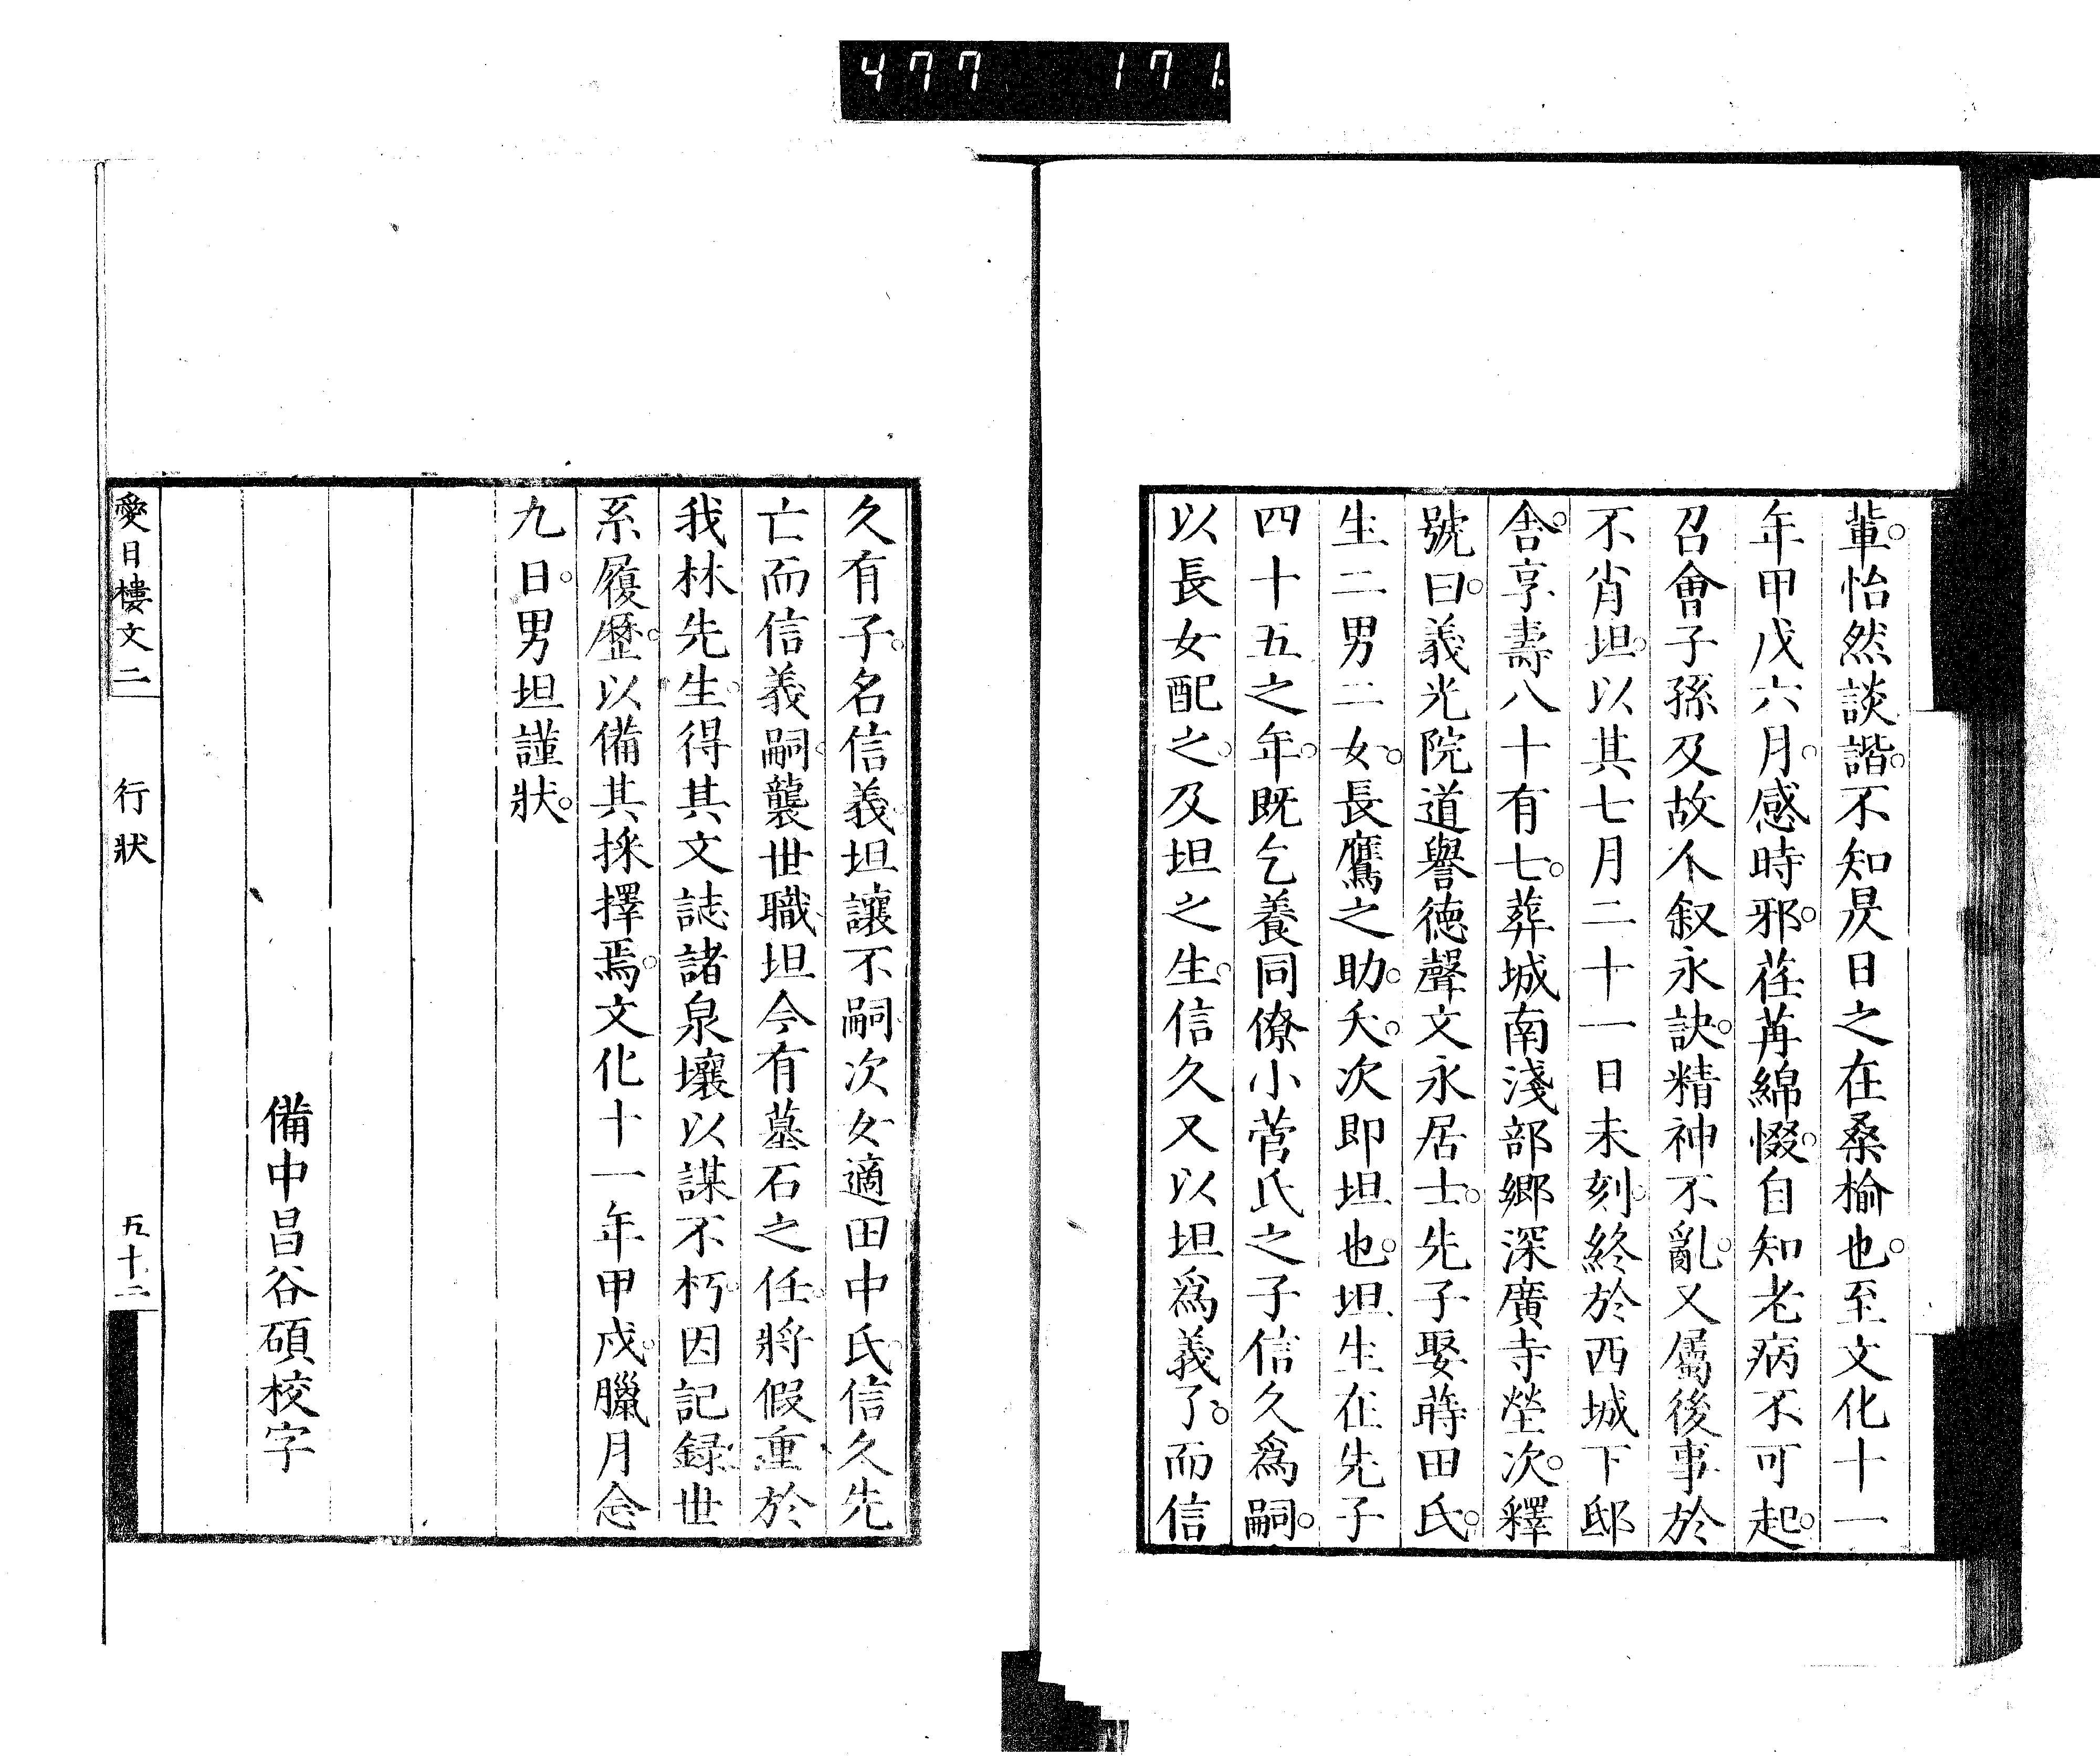 477 171
輩。怡然談諧。不知昃日之在桑榆也。至文化十一
年甲戊六月。感時邪。荏苒綿惙。自知老病不可起。
召會子孫及故人叙永訣。精神不亂。又屬後事於
不肖坦。以其七月二十一日未刻。終於西城下邸
舍。享壽八十有七。葬城南淺部郷深廣寺塋次。釋
號曰。義光院道譽徳聲文永居士。先子娶蒔田氏。
生二男二女。長鷹之助。夭。次即坦也。坦生在先子
四十五之年。既乞養同僚小菅氏之子信久爲嗣。
以長女配之。及坦之生。信久又以坦爲義子。而信
久有子。名信義。坦讓不嗣。次女適田中氏。信久先
亡而信義嗣。襲世職。坦今有墓石之任。將假重於
我林先生。得其文誌諸泉壤以謀不朽。因記録世
系履歷。以備其採擇焉。文化十一年甲戌。臘月念
九日。男坦謹狀。
備中昌谷碩校字
愛日樓文二 行狀 五十二